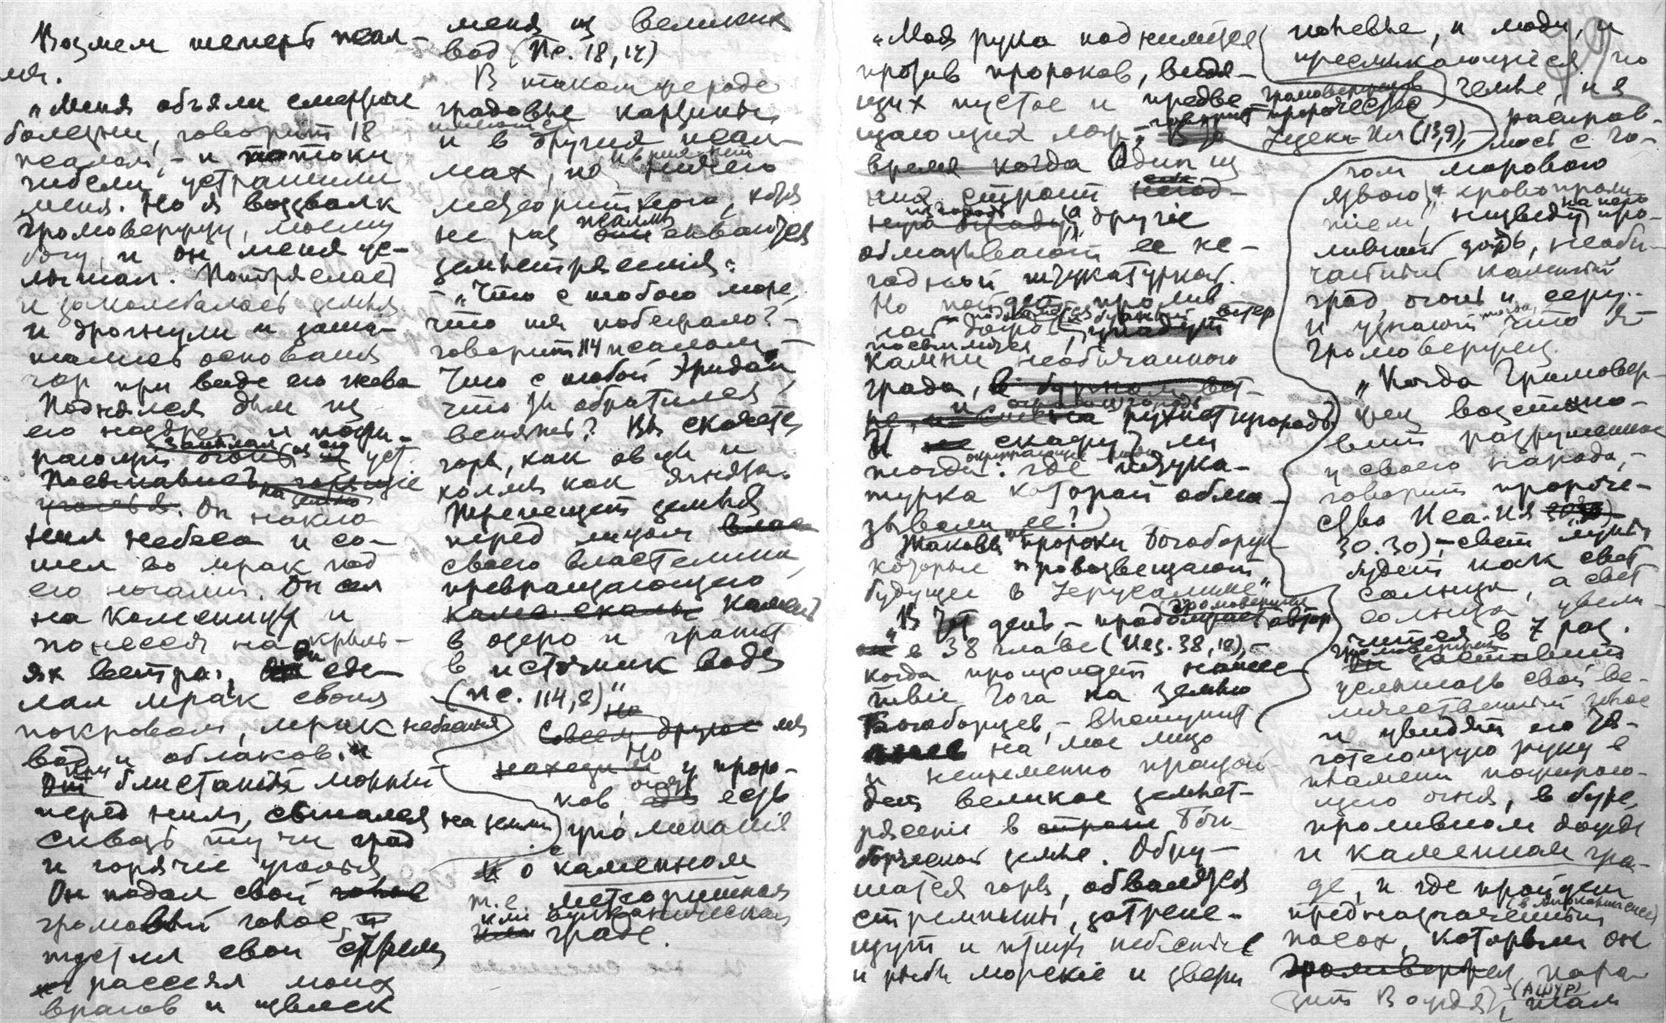 Возмем теперь псал-
мы.
„Меня объяли смертные
болезни, говорит 18
псалом, – и потоки
гибели устрашили
меня. Но я воззвалк
Громовержцу, моему
богу, и он меня ус-
лышал. Потряслась
и заколебалась земля
и дрогнули и заша-
тались основания
гор при виде его гнева
Поднялся дым из
его ноздрей и пожи-
рающий огонь из уст
Он накло
нил небеса и со-
шел во мрак под
его ногами. Он сел
на колесницу и
понесся на крыль-
ях ветра, Он сде-
лал мрак своим
покровом, мрак небесных
вод и облаков.
От блистанья молний
перед ним, сыпался на землю
сквозь тучи град
и горячие уголья
Он подал свой
громовый голос и
пустил свои стрелы
и рассеял моих
врагов и извлек
меня из великих
вод (Пс. 18, 17)
В таком же роде
градовые картины
имеются
и в других псал-
мах, но ничего
метеоритного, хотя
не раз псалмы
землетрясения:
– „Что с тобою море,
что ты побежало? –
говорит 114 псалом, –
Что с тобой Иридан
что ты обратился
вспять? Вы скачете
горы, как овцы и
холмы как ягнята.
Трепещет земля
перед лицом
своего властелина,
превращающего
камень
в озеро и гранит
в источник воды
(пс. 114, 8)"
Но у проро-
ков есть
упоминания
и о каменном
т.е. метеоритном
или вулканическом
граде.
„Моя рука поднимется
против пророков, видя-
щих пустое и предве
щающих ложь, – говорит пророчество
Иезеки-Ил (13,9),
время когда Один из
них строит
другие
обмазывают ее не-
годный штукатуркой.
Но пойдет пролив
ной дождь,
посыпятся
камни необычайного
града,
и рухнет город
И скажут ли
тогда: где штука-
турка которой обма-
зывали ее?
Таковы пророки Богоборца
которые провозвещают
будущее в Иерусалиме"
„В тот день, – продолжает автор
в 38 главе (Иез. 38, 18), –
когда произойдет нашес-
твие Гога на землю
Богоборцев, –
на мое лицо
и непременно произой-
дет великое землет-
рясение в Бого-
борческой земле. Обру-
шатся горы, обвалятся
стремнины, затрепе-
щут и птицы небесные
и рыбы морские и звери
полевые, и люди, и
пресмыкающиеся по
земле, и я
расправ-
люсь с Го-
гом моровою
язвою и кровопроли
тием, низведу на него про-
ливной дождь, необы-
чайный каменный
град, огонь и серу.
и узнают тогда что я –
Громовержец.
„Когда Громовер-
жец восстано-
вит разрушенное
у своего народа, –
говорит пророче-
ство Иса-Ия
30.30) – свет луны
будет как свет
солнца, а свет
солнца увели-
чится в 7 раз.
Громовержец
услышать свой ве-
личественный голос
и увидят его тя-
готеющую руку в
пламени пожираю-
щего огня, в буре,
проливном дожде
и каменном гра-
де, и где пройдет
предназначенный
посох, которым он
пора-
зит (АШУР), там